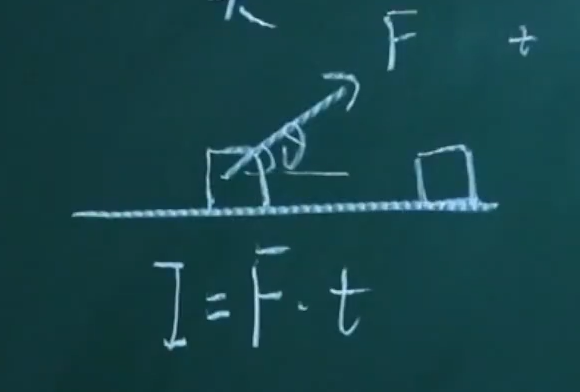 F t
θ
I = F · t